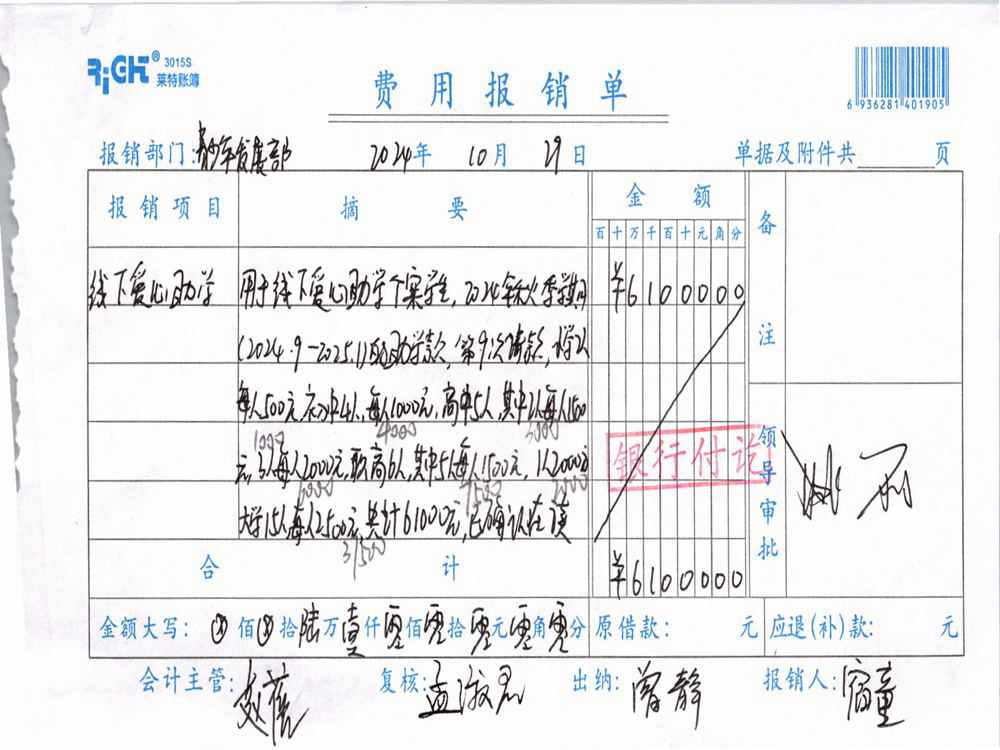 RiGHT® 3015S
莱特账簿
费用报销单
6 936281 401905
报销部门:青少年发展部 2024年 10月 29日 单据及附件共 页
报销项目 摘要 金额 备注
百十万千百十元角分
线下爱心助学 用于线下爱心助学个案学生,2024年秋季学期 ¥6100000
(2024.9-2025.1)的助学款,第9次请款,小学2人
每人500元,初中4人,每人1000元,高中5人,其中2人每人1500
1000 4000 3000
元,3人每人2000元,职高6人,其中5人每人1500元,1人2000元
6000 7500 2000
大学15人每人2500元,共计61000元,已确认在读
37500
银行付讫
领导审批
合计 ¥6100000
金额大写: ⊗佰⊗拾陆万壹仟零佰零拾零元零角零分 原借款: 元 应退(补)款: 元
会计主管: 复核:孟淑君 出纳:曾静 报销人:宿童